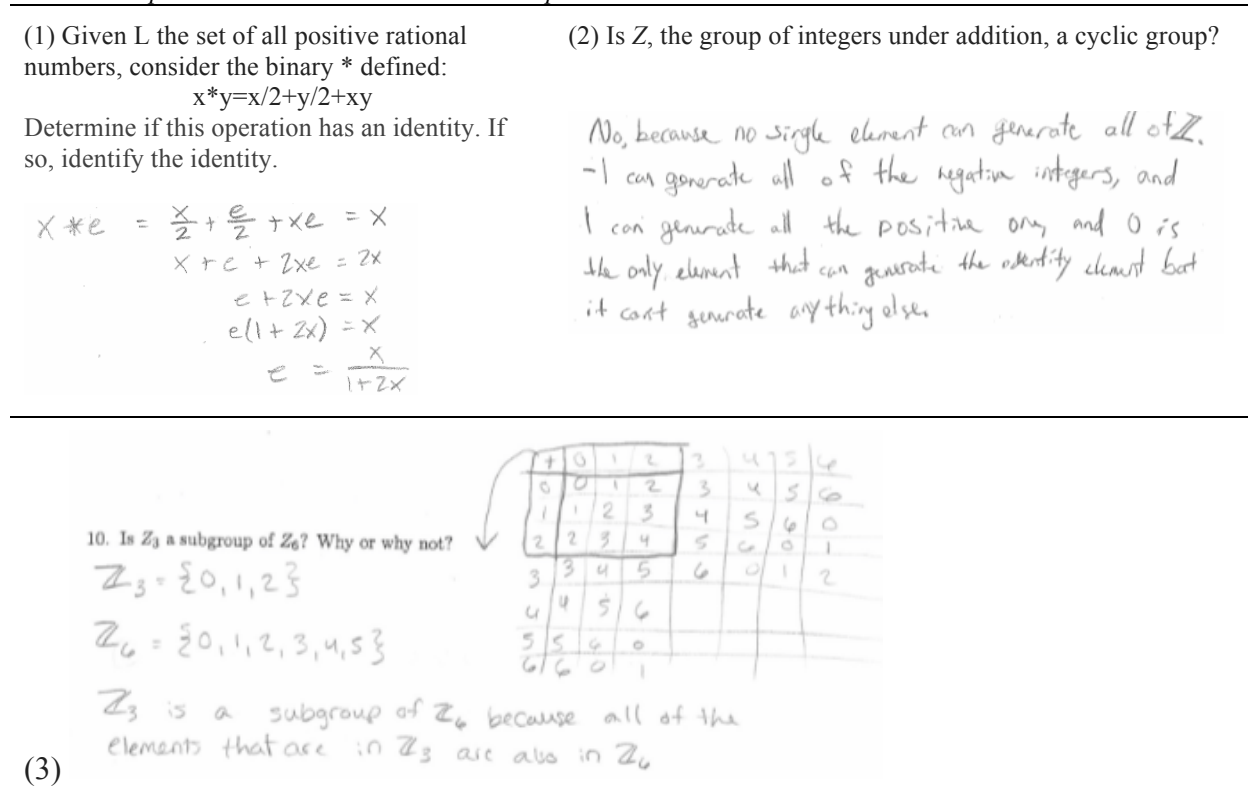 (1) Given L the set of all positive rational
numbers, consider the binary * defined:
x*y=x/2+y/2+xy
Determine if this operation has an identity. If
so, identify the identity.
x * e = x/2 + e/2 + xe = x
x + e + 2xe = 2x
e + 2xe = x
e(1 + 2x) = x
e = x/(1+2x)
(2) Is Z, the group of integers under addition, a cyclic group?
No, because no single element can generate all of ℤ.
-1 can generate all of the negative integers, and
1 can generate all the positive one, and 0 is
the only element that can generate the identity element but
it can't generate anything else.
10. Is Z₃ a subgroup of Z₆? Why or why not?
ℤ₃ = {0,1,2}
ℤ₆ = {0,1,2,3,4,5}
ℤ₃ is a subgroup of ℤ₆ because all of the
elements that are in ℤ₃ are also in ℤ₆
+ 0 1 2 3 4 5 6
0 0 1 2 3 4 5 6
1 1 2 3 4 5 6 0
2 2 3 4 5 6 0 1
3 3 4 5 6 0 1 2
4 4 5 6
5 5 6 0
6 6 0 1
(3)